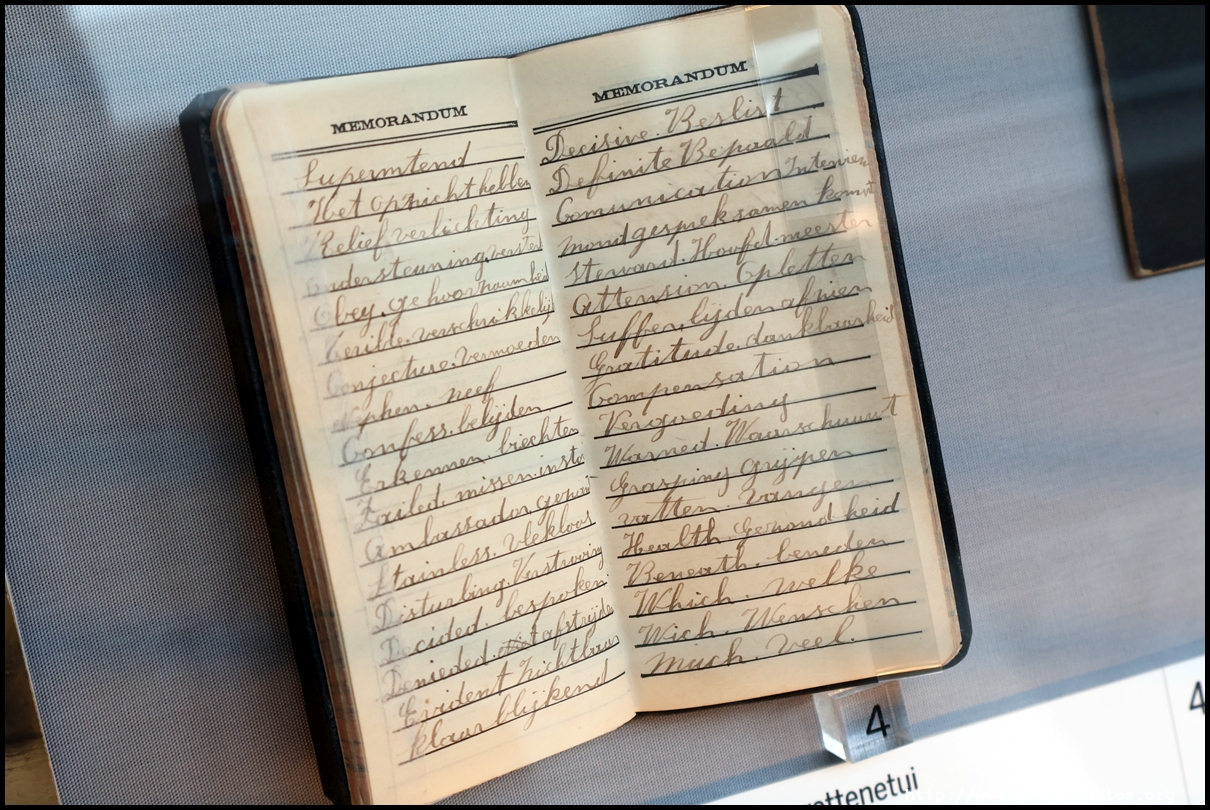 MEMORANDUM
Superintend
Het opzicht hebben
Relief, verlichting
ondersteuning,
Obey, gehoorzaamheid
Terible, verschrikkelijk
Conjecture, Vermoeden
Nephen, neef
Confess, belijden,
Erkennen, biechten
Failed, missen,
Ambassador, gezant
Stainless, vlekloos
Disturbing, Verstroring
Decided, bespoken
Denieded, afstrijde
Evident Zichtbaar
klaarblijkend
MEMORANDUM
Decisive. Beslist
Definite Bepaald
Comunication Interview
mondgesprek samen komst
Steward. Hoofd. meester
Attension, Opletten
Suffer, lijden
Gratitude, dankbaarheid
Compensation
Vergoeding
Warned. Waarschuwt
Grasping Grijpen
vatten. vangen
Health, Gezondheid
Beneath. beneden
Which. welke
Wich. Wenschen
Much. Veel.
4
4
ottenetui